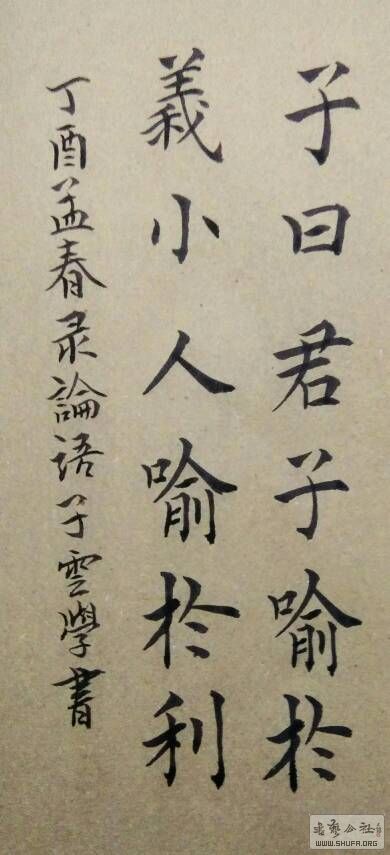 子曰君子喻於
義小人喻於利
丁酉孟春录論语子雲學書
书艺公社
WWW.SHUFA.ORG